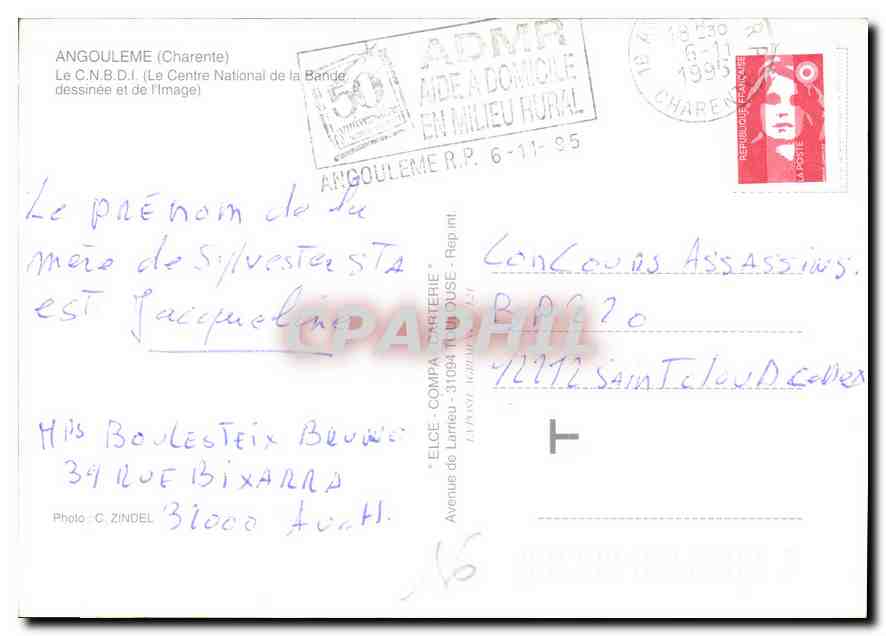 ANGOULEME (Charente)
Le C.N.B.D.I. (Le Centre National de la Bande
dessinée et de l'Image)
50
ADMR
AIDE A DOMICILE
EN MILIEU RURAL
ANGOULEME R.P. 6-11-95
18H30
6-11
1995
CHARENTE
REPUBLIQUE FRANÇAISE
LA POSTE
Le PRÉNOM de la
mère de Sylvester STA
EST Jacqueline
Mrs BOULESTEIX BRUNO
39 RUE BIXARRA
Photo : C. ZINDEL
31000 Auch.
" ELCE - COMPA CARTERIE "
Avenue de Larrieu - 31094 TOULOUSE - Rep.int.
CONCOURS ASSASSINS.
B.P. 220
92212 SAINT CLOUD Cedex
T
16
CPAPHIL